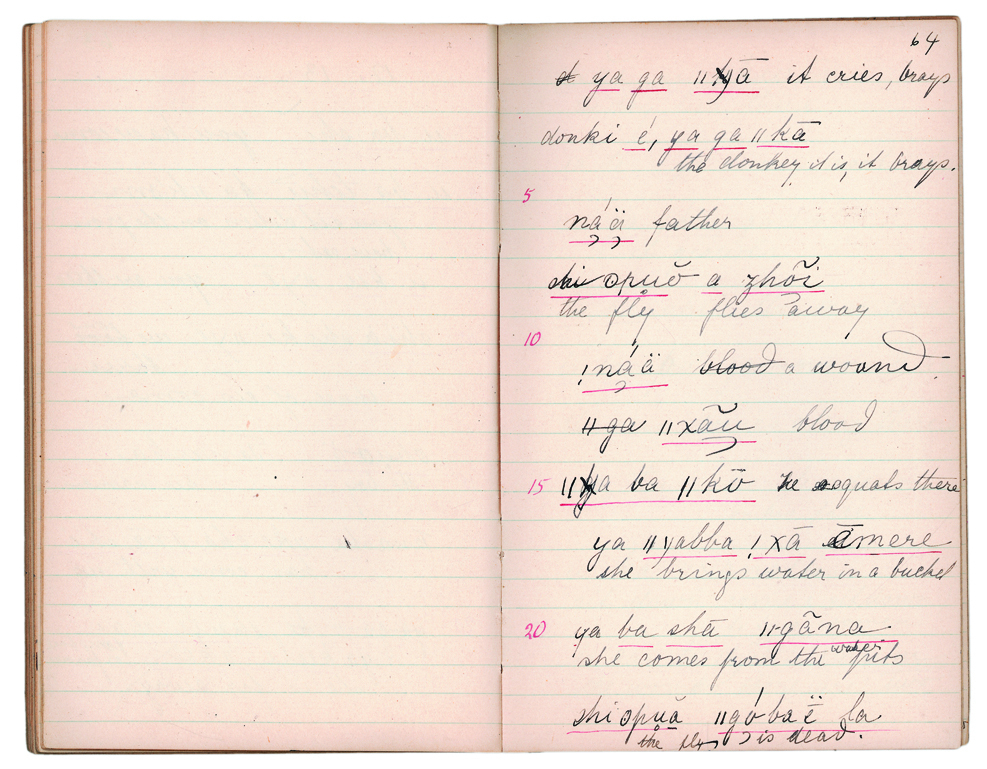 64
ya ga ǁkā it cries, brays
donki é, ya ga ǁkā
the donkey it is, it brays.
5
ná̦ä̦ father
shi ɔpuŏ a zhõ̆i
the fly flies away
10
!ná̦ä blood a wound
ǁga ǁxãu blood
15 ǁya ba ǁkō he squats there
ya ǁyabba !xā ēmere
she brings water in a bucket
20 ya ba shā ǁgāna
she comes from the water pits
shi ɔpuă ǁgóbaë̄ la
the fly is dead.